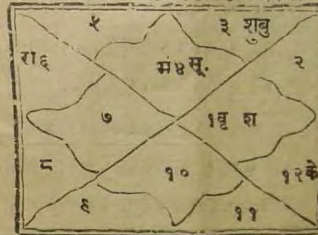 ५ ३ शुबु
रा६ मं४सू. २
७ १वृ श
८ १० १२के
९ ११